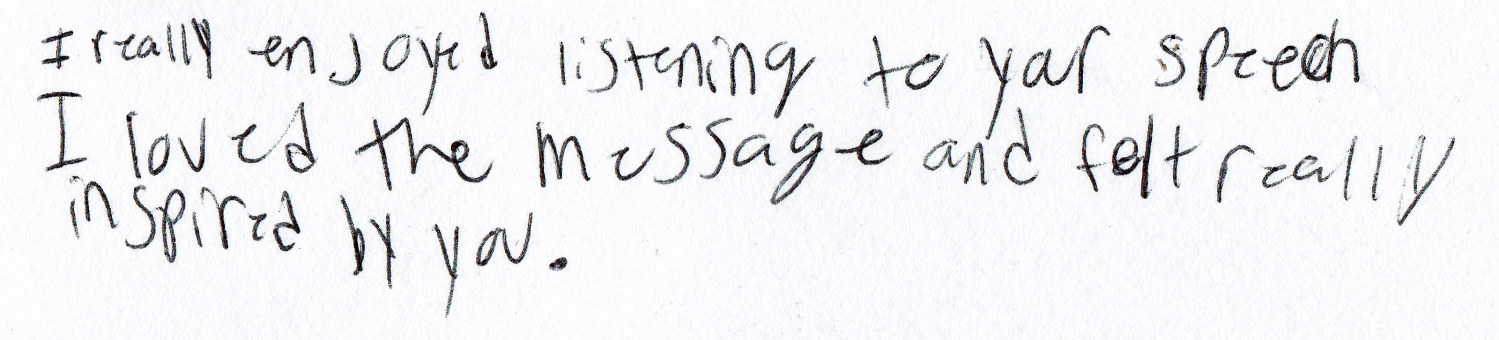 I really enjoyed listening to your speech
I loved the message and felt really
inspired by you.